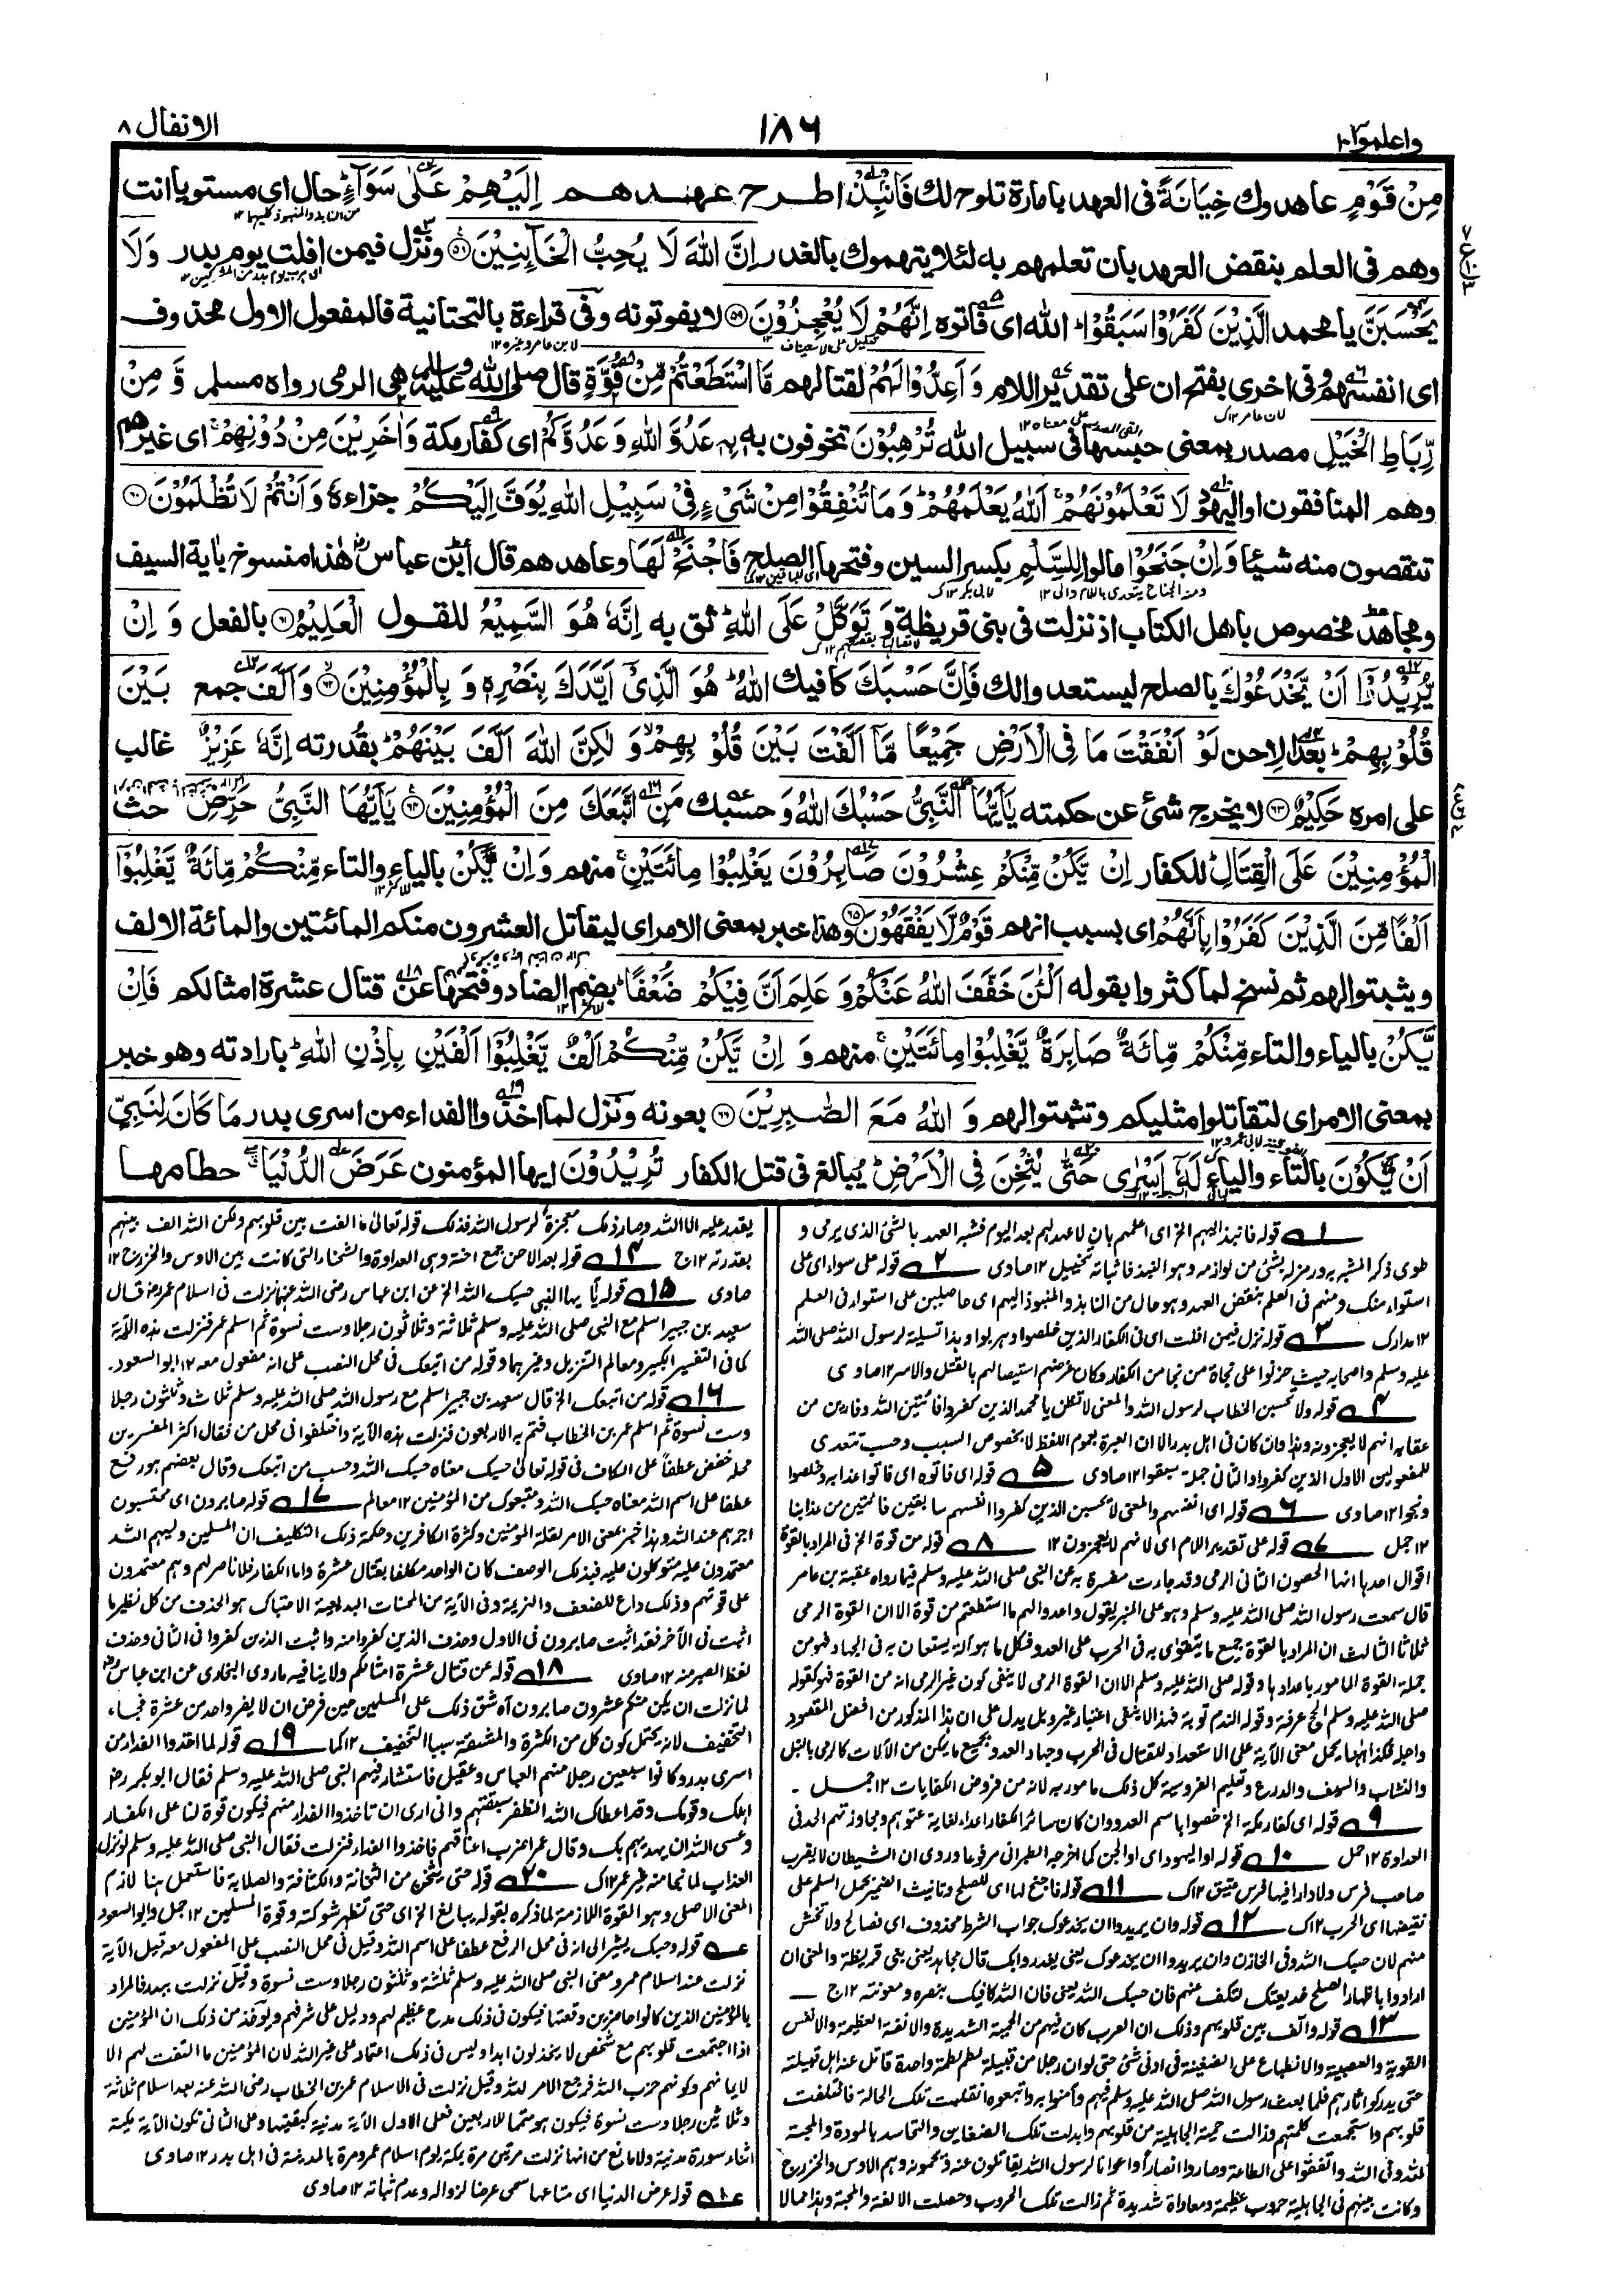 واعلموا ١٠
١٨٦
الانفال ٨
مِنْ قَوْمٍ عاهدوك خِيَانَةً فى العهد بامارة تلوح لك فَانْۢبِذْ اطرح عهدهم اِلَيْهِمْ عَلٰى سَوَآءٍ حال اى مستويا انت
وهم فى العلم بنقض العهد بان تعلمهم به لئلا يتهموك بالغدر اِنَّ اللّٰهَ لَا يُحِبُّ الْخَآئِنِيْنَ ۝٥٨ ونزل فيمن افلت يوم بدر وَلَا
يَحْسَبَنَّ يا محمد الَّذِيْنَ كَفَرُوْا سَبَقُوْا الله اى فاتوه اِنَّهُمْ لَا يُعْجِزُوْنَ ۝٥٩ لا يفوتونه وفى قراءة بالتحتانية فالمفعول الاول محذوف
اى انفسهم وفى اخرى بفتح ان على تقدير اللام وَاَعِدُّوْا لَهُمْ لقتالهم مَّا اسْتَطَعْتُمْ مِّنْ قُوَّةٍ قال صلى الله عليه وسلم هى الرمى رواه مسلم وَّ مِنْ
رِّبَاطِ الْخَيْلِ مصدر بمعنى حبسها فى سبيل الله تُرْهِبُوْنَ تخوفون به بِهٖ عَدُوَّ اللّٰهِ وَعَدُوَّكُمْ اى كفار مكة وَاٰخَرِيْنَ مِنْ دُوْنِهِمْ اى غيرهم
وهم المنافقون او اليهود لَا تَعْلَمُوْنَهُمْ اَللّٰهُ يَعْلَمُهُمْ وَمَا تُنْفِقُوْا مِنْ شَيْءٍ فِيْ سَبِيْلِ اللّٰهِ يُوَفَّ اِلَيْكُمْ جزاءه وَاَنْتُمْ لَا تُظْلَمُوْنَ ۝٦٠
تنقصون منه شيئا وَاِنْ جَنَحُوْا مالوا لِلسَّلْمِ بكسر السين وفتحها الصلح فَاجْنَحْ لَهَا وعاهدهم قال ابن عباس هذا منسوخ باٰية السيف
ومجاهد مخصوص باهل الكتاب اذ نزلت فى بنى قريظة وَ تَوَكَّلْ عَلَى اللّٰهِ ثق به اِنَّهٗ هُوَ السَّمِيْعُ للقول الْعَلِيْمُ ۝٦١ بالفعل وَ اِنْ
يُّرِيْدُوْٓا اَنْ يَّخْدَعُوْكَ بالصلح ليستعدوا لك فَاِنَّ حَسْبَكَ كافيك اللّٰهُ هُوَ الَّذِيْٓ اَيَّدَكَ بِنَصْرِهٖ وَ بِالْمُؤْمِنِيْنَ ۝٦٢ وَاَلَّفَ جمع بَيْنَ
قُلُوْبِهِمْ بعد الاحن لَوْ اَنْفَقْتَ مَا فِي الْاَرْضِ جَمِيْعًا مَّآ اَلَّفْتَ بَيْنَ قُلُوْبِهِمْ وَ لٰكِنَّ اللّٰهَ اَلَّفَ بَيْنَهُمْ بقدرته اِنَّهٗ عَزِيْزٌ غالب
على امره حَكِيْمٌ ۝٦٣ لا يخرج شئ عن حكمته يٰٓاَيُّهَا النَّبِيُّ حَسْبُكَ اللّٰهُ وَ حسبك مَنِ اتَّبَعَكَ مِنَ الْمُؤْمِنِيْنَ ۝٦٤ يٰٓاَيُّهَا النَّبِيُّ حَرِّضِ حث
الْمُؤْمِنِيْنَ عَلَى الْقِتَالِ للكفار اِنْ يَّكُنْ مِّنْكُمْ عِشْرُوْنَ صَابِرُوْنَ يَغْلِبُوْا مِائَتَيْنِ منهم وَاِنْ يَّكُنْ بالياء والتاء مِّنْكُمْ مِّائَةٌ يَّغْلِبُوْٓا
اَلْفًا مِّنَ الَّذِيْنَ كَفَرُوْا بِاَنَّهُمْ اى بسبب انهم قَوْمٌ لَّا يَفْقَهُوْنَ ۝٦٥ وهذا خبر بمعنى الامر اى ليقاتل العشرون منكم المائتين والمائة الالف
ويثبتوا لهم ثم نسخ لما كثروا بقوله اَلْـٰٔنَ خَفَّفَ اللّٰهُ عَنْكُمْ وَ عَلِمَ اَنَّ فِيْكُمْ ضَعْفًا بضم الضاد وفتحها عن قتال عشرة امثالكم فَاِنْ
يَّكُنْ بالياء والتاء مِّنْكُمْ مِّائَةٌ صَابِرَةٌ يَّغْلِبُوْا مِائَتَيْنِ منهم وَ اِنْ يَّكُنْ مِّنْكُمْ اَلْفٌ يَّغْلِبُوْٓا اَلْفَيْنِ بِاِذْنِ اللّٰهِ بارادته وهو خبر
بمعنى الامر اى لتقاتلوا مثليكم وتثبتوا لهم وَ اللّٰهُ مَعَ الصّٰبِرِيْنَ ۝٦٦ بعونه ونزل لما اخذوا الفداء من اسرى بدر مَا كَانَ لِنَبِيٍّ
اَنْ يَّكُوْنَ بالتاء والياء لَهٗٓ اَسْرٰى حَتّٰى يُثْخِنَ فِي الْاَرْضِ يبالغ فى قتل الكفار تُرِيْدُوْنَ ايها المؤمنون عَرَضَ الدُّنْيَا حطامها
١ قوله فانبذ اليهم الخ اى اعلمهم بان لا عهد لهم بعد اليوم فشبه العهد بالشئ الذى يرمى و
طوى ذكر المشبه به ورمز له بشئ من لوازمه وهو النبذ فاثباته تخييل ١٢ صاوى ٢ قوله على سواء اى على
استواء منك ومنهم فى العلم بنقض العهد وهو حال من النابذ والمنبوذ اليهم اى حاصلين على استواء فى العلم
١٢ مدارك ٣ قوله نزل فيمن افلت اى فى الكفار الذين خلصوا وهربوا وهذا تسلية لرسول الله صلى الله
عليه وسلم واصحابه حيث حزنوا على نجاة من نجا من الكفار وكان غرضهم استيصالهم بالقتل والاسر ١٢ صاوى
٤ قوله ولا تحسبن الخطاب لرسول الله والمعنى لا تظن يا محمد الذين كفروا فائتين الله وفارين من
عقابه انهم لا يعجزونه وهذا وان كان فى اهل بدر الا ان العبرة بعموم اللفظ لا بخصوص السبب وحسب تتعدى
للمفعولين الاول الذين كفروا والثانى جملة سبقوا ١٢ صاوى ٥ قوله اى فاتوه اى فاتوا عذابه وخلصوا
ونجوا ١٢ صاوى ٦ قوله اى انفسهم والمعنى لا يحسبن الذين كفروا انفسهم سابقين فائتين من عذابنا
١٢ جمل ٧ قوله على تقدير اللام اى لانهم لا يعجزون ١٢ ٨ قوله من قوة الخ فى المراد بالقوة
اقوال احدها انها الحصون الثانى الرمى وقد جاءت مفسرة به عن النبى صلى الله عليه وسلم فيما رواه عقبة بن عامر
قال سمعت رسول الله صلى الله عليه وسلم وهو على المنبر يقول واعدوا لهم ما استطعتم من قوة الا ان القوة الرمى
ثلاثا الثالث ان المراد بالقوة جميع ما يتقوى به فى الحرب على العدو فكل ما هو آلة يستعان به فى الجهاد فهو من
جملة القوة المامور باعدادها وقوله صلى الله عليه وسلم الا ان القوة الرمى لا ينفى كون غير الرمى انه من القوة فهو كقوله
صلى الله عليه وسلم الحج عرفة وقوله الندم توبة فهذا لا ينفى اعتبار غيره بل يدل على ان هذا المذكور من افضل المقصود
واجله فكذا ههنا يحمل معنى الآية على الاستعداد للقتال فى الحرب وجهاد العدو بجميع ما يمكن من الآلات كالرمى بالنبل
والنشاب والسيف والدرع وتعليم الفروسية كل ذلك مامور به لانه من فروض الكفايات ١٢ جمل ۔
٩ قوله اى كفار مكة الخ خصوا باسم العدو وان كان سائر الكفار اعداء لغاية عتوهم ومجاوزتهم الحد فى
العداوة ١٢ جمل ١٠ قوله او اليهود اى او الجن كما اخرجه الطبرانى مرفوعا وروى ان الشيطان لا يقرب
صاحب فرس ولا دارا فيها فرس عتيق ١٢ ك ١١ قوله فاجنح لها اى للصلح وتانيث الضمير بحمل السلم على
نقيضها اى الحرب ١٢ ك ١٢ قوله وان يريدوا ان يخدعوك جواب الشرط محذوف اى فصالح ولا تخش
منهم لان حسبك الله وفى الخازن وان يريدوا ان يخدعوك يعنى يغدروا بك قال مجاهد يعنى بنى قريظة والمعنى ان
ارادوا باظهار الصلح خديعتك لتكف عنهم فان حسبك الله يعنى فان الله كافيك بنصره ومعونته ١٢ ج
١٣ قوله والف بين قلوبهم وذلك ان العرب كان فيهم من الحمية الشديدة والانفة العظيمة والانفس
القوية والعصبية والانطباع على الضغينة فى ادنى شئ حتى لو ان رجلا من قبيلة لطم لطمة واحدة قاتل عنه اهل قبيلته
حتى يدركوا ثارهم فلما بعث رسول الله صلى الله عليه وسلم فيهم وآمنوا به واتبعوه انقلبت تلك الحالة فائتلفت
قلوبهم واستجمعت كلمتهم وزالت حمية الجاهلية من قلوبهم وابدلت تلك الضغاين والتحاسد بالمودة والمحبة
لله وفى الله واتفقوا على الطاعة وصاروا انصارا واعوانا لرسول الله يقاتلون عنه ويحمونه وهم الاوس والخزرج
وكانت بينهم فى الجاهلية حروب عظيمة ومعاداة شديدة ثم زالت تلك الحروب وحصلت الالفة والمحبة وهذا مما لا
يقدر عليه الا الله وصار ذلك معجزة لرسول الله فذلك قوله تعالى ما الفت بين قلوبهم ولكن الله الف بينهم
بقدرته ١٢ ج ١٤ قوله بعد الاحن جمع احنة وهى العداوة والشحناء التى كانت بين الاوس والخزرج ١٢
صاوى ١٥ قوله يا ايها النبى حسبك الله الخ عن ابن عباس رضى الله عنهما نزلت فى اسلام عمر رض قال
سعيد بن جبير اسلم مع النبى صلى الله عليه وسلم ثلاثة وثلاثون رجلا وست نسوة ثم اسلم عمر فنزلت هذه الآية
كما فى التفسير الكبير ومعالم التنزيل وغيرهما وقوله من اتبعك فى محل النصب على انه مفعول معه ١٢ ابو السعود۔
١٦ قوله من اتبعك الخ قال سعيد بن جبير اسلم مع رسول الله صلى الله عليه وسلم ثلاث وثلثون رجلا
وست نسوة ثم اسلم عمر بن الخطاب فتم به الاربعون فنزلت هذه الآية واختلفوا فى محل من فقال اكثر المفسرين
محله خفض عطفا على الكاف فى قوله تعالى حسبك معناه حسبك الله وحسب من اتبعك وقال بعضهم هو رفع
عطفا على اسم الله معناه حسبك الله ومتبعوك من المؤمنين ١٢ معالم ١٧ قوله صابرون اى محتسبون
اجرهم عند الله وهذا خبر بمعنى الامر لقلة المؤمنين وكثرة الكافرين وحكمة ذلك التكليف ان المسلمين وليهم الله
معتمدون عليه متوكلون عليه فبذلك الوصف كان الواحد مكلفا بقتال عشرة واما الكفار فلا ناصر لهم وهم معتمدون
على قوتهم وذلك داع للضعف والهزيمة وفى الآية من المحسنات البديعية الاحتباك هو الحذف من كل نظير ما
اثبت فى الآخر فقد اثبت صابرون فى الاول وحذف الذين كفروا منه واثبت الذين كفروا فى الثانى وحذف
لفظ الصبر منه ١٢ صاوى ١٨ قوله عن قتال عشرة امثالكم ولا ينافيه ما روى البخارى عن ابن عباس رض
لما نزلت ان يكن منكم عشرون صابرون آه شق ذلك على المسلمين حين فرض ان لا يفر واحد من عشرة فجاء
التخفيف لانه يحتمل كون كل من الكثرة والمشقة سببا للتخفيف ١٢ كما ١٩ قوله لما اخذوا الفداء من
اسرى بدر وكانوا سبعين رجلا منهم العباس وعقيل فاستشار فيهم النبى صلى الله عليه وسلم فقال ابو بكر رض
اهلك وقومك وقد اعطاك الله الظفر عليهم وانى ارى ان تاخذوا الفداء منهم فيكون قوة لنا على الكفار
وعسى الله ان يهديهم بك وقال عمر اضرب اعناقهم فاخذوا الفداء فنزلت فقال النبى صلى الله عليه وسلم لو نزل
العذاب لما نجا منه غير عمر ١٢ ك ٢٠ قوله حتى يثخن من الثخانة والكثافة والصلابة فاستعمل هنا لازم
المعنى الاصلى وهو القوة اللازمة لما ذكره بقوله يبالغ الخ اى حتى تظهر شوكته وقوة المسلمين ١٢ جمل وابو السعود
عـه قوله وحسبك يشير الى انه فى محل الرفع عطفا على اسم الله وقيل فى محل النصب على المفعول معه قيل الآية
نزلت عند اسلام عمر ومعنى النبى صلى الله عليه وسلم ثلثة وثلثون رجلا وست نسوة وقيل نزلت ببدر فالمراد
بالمؤمنين الذين كانوا حاضرين وقعتها فيكون فى ذلك مدح عظيم لهم ودليل على شرفهم ويؤخذ من ذلك ان المؤمنين
اذا اجتمعت قلوبهم مع شخص لا يخذلون ابدا وليس فى ذلك اعتماد على غير الله لان المؤمنين ما التفت لهم الا
لايمانهم وكونهم حزب الله فرجع الامر لله وقيل نزلت فى الاسلام عمر بن الخطاب رضى الله عنه بعد اسلام ثلاثة
وثلاثين رجلا وست نسوة فيكون هو متمما للاربعين فعلى الاول الآية مدنية كبقيتها وعلى الثانى تكون الآية مكية
اثناء سورة مدنية ولا مانع من انها نزلت مرتين مرة بمكة يوم اسلام عمر ومرة بالمدينة فى اهل بدر ١٢ صاوى
قوله عرض الدنيا اى متاعها سمى عرضا لزواله وعدم ثباته ١٢ صاوى